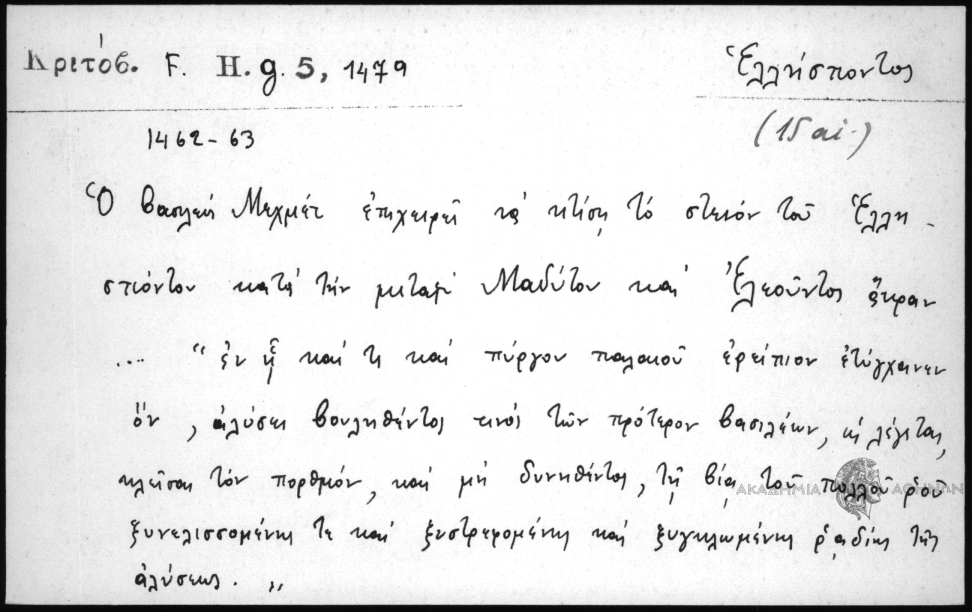 Κριτόβ. F. H. g. 5, 1479
Ἑλλήσποντος
1462-63
(15 αἰ.)
Ὁ βασιλεύς Μεχμέτ ἐπιχειρεῖ νά κτίσῃ τό στενόν τοῦ Ἑλλη-
σπόντου κατά τήν μεταξύ Μαδύτου καί Ἐλεοῦντος ἄκραν
... "ἐν ᾗ καί τι καί πύργου παλαιοῦ ἐρείπιον ἐτύγχανεν
ὄν, ἁλύσει βουληθέντος τινός τῶν πρότερον βασιλέων, ὡς λέγεται,
κλεῖσαι τόν πορθμόν, καί μή δυνηθέντος, τῇ βίᾳ τοῦ πολλοῦ ῥοῦ
ξυνελισσομένης τε καί ξυστρεφομένης καί ξυγκλωμένης ῥᾳδίως τῆς
ἁλύσεως. "
ΑΚΑΔΗΜΙΑ ΑΘΗΝΩΝ